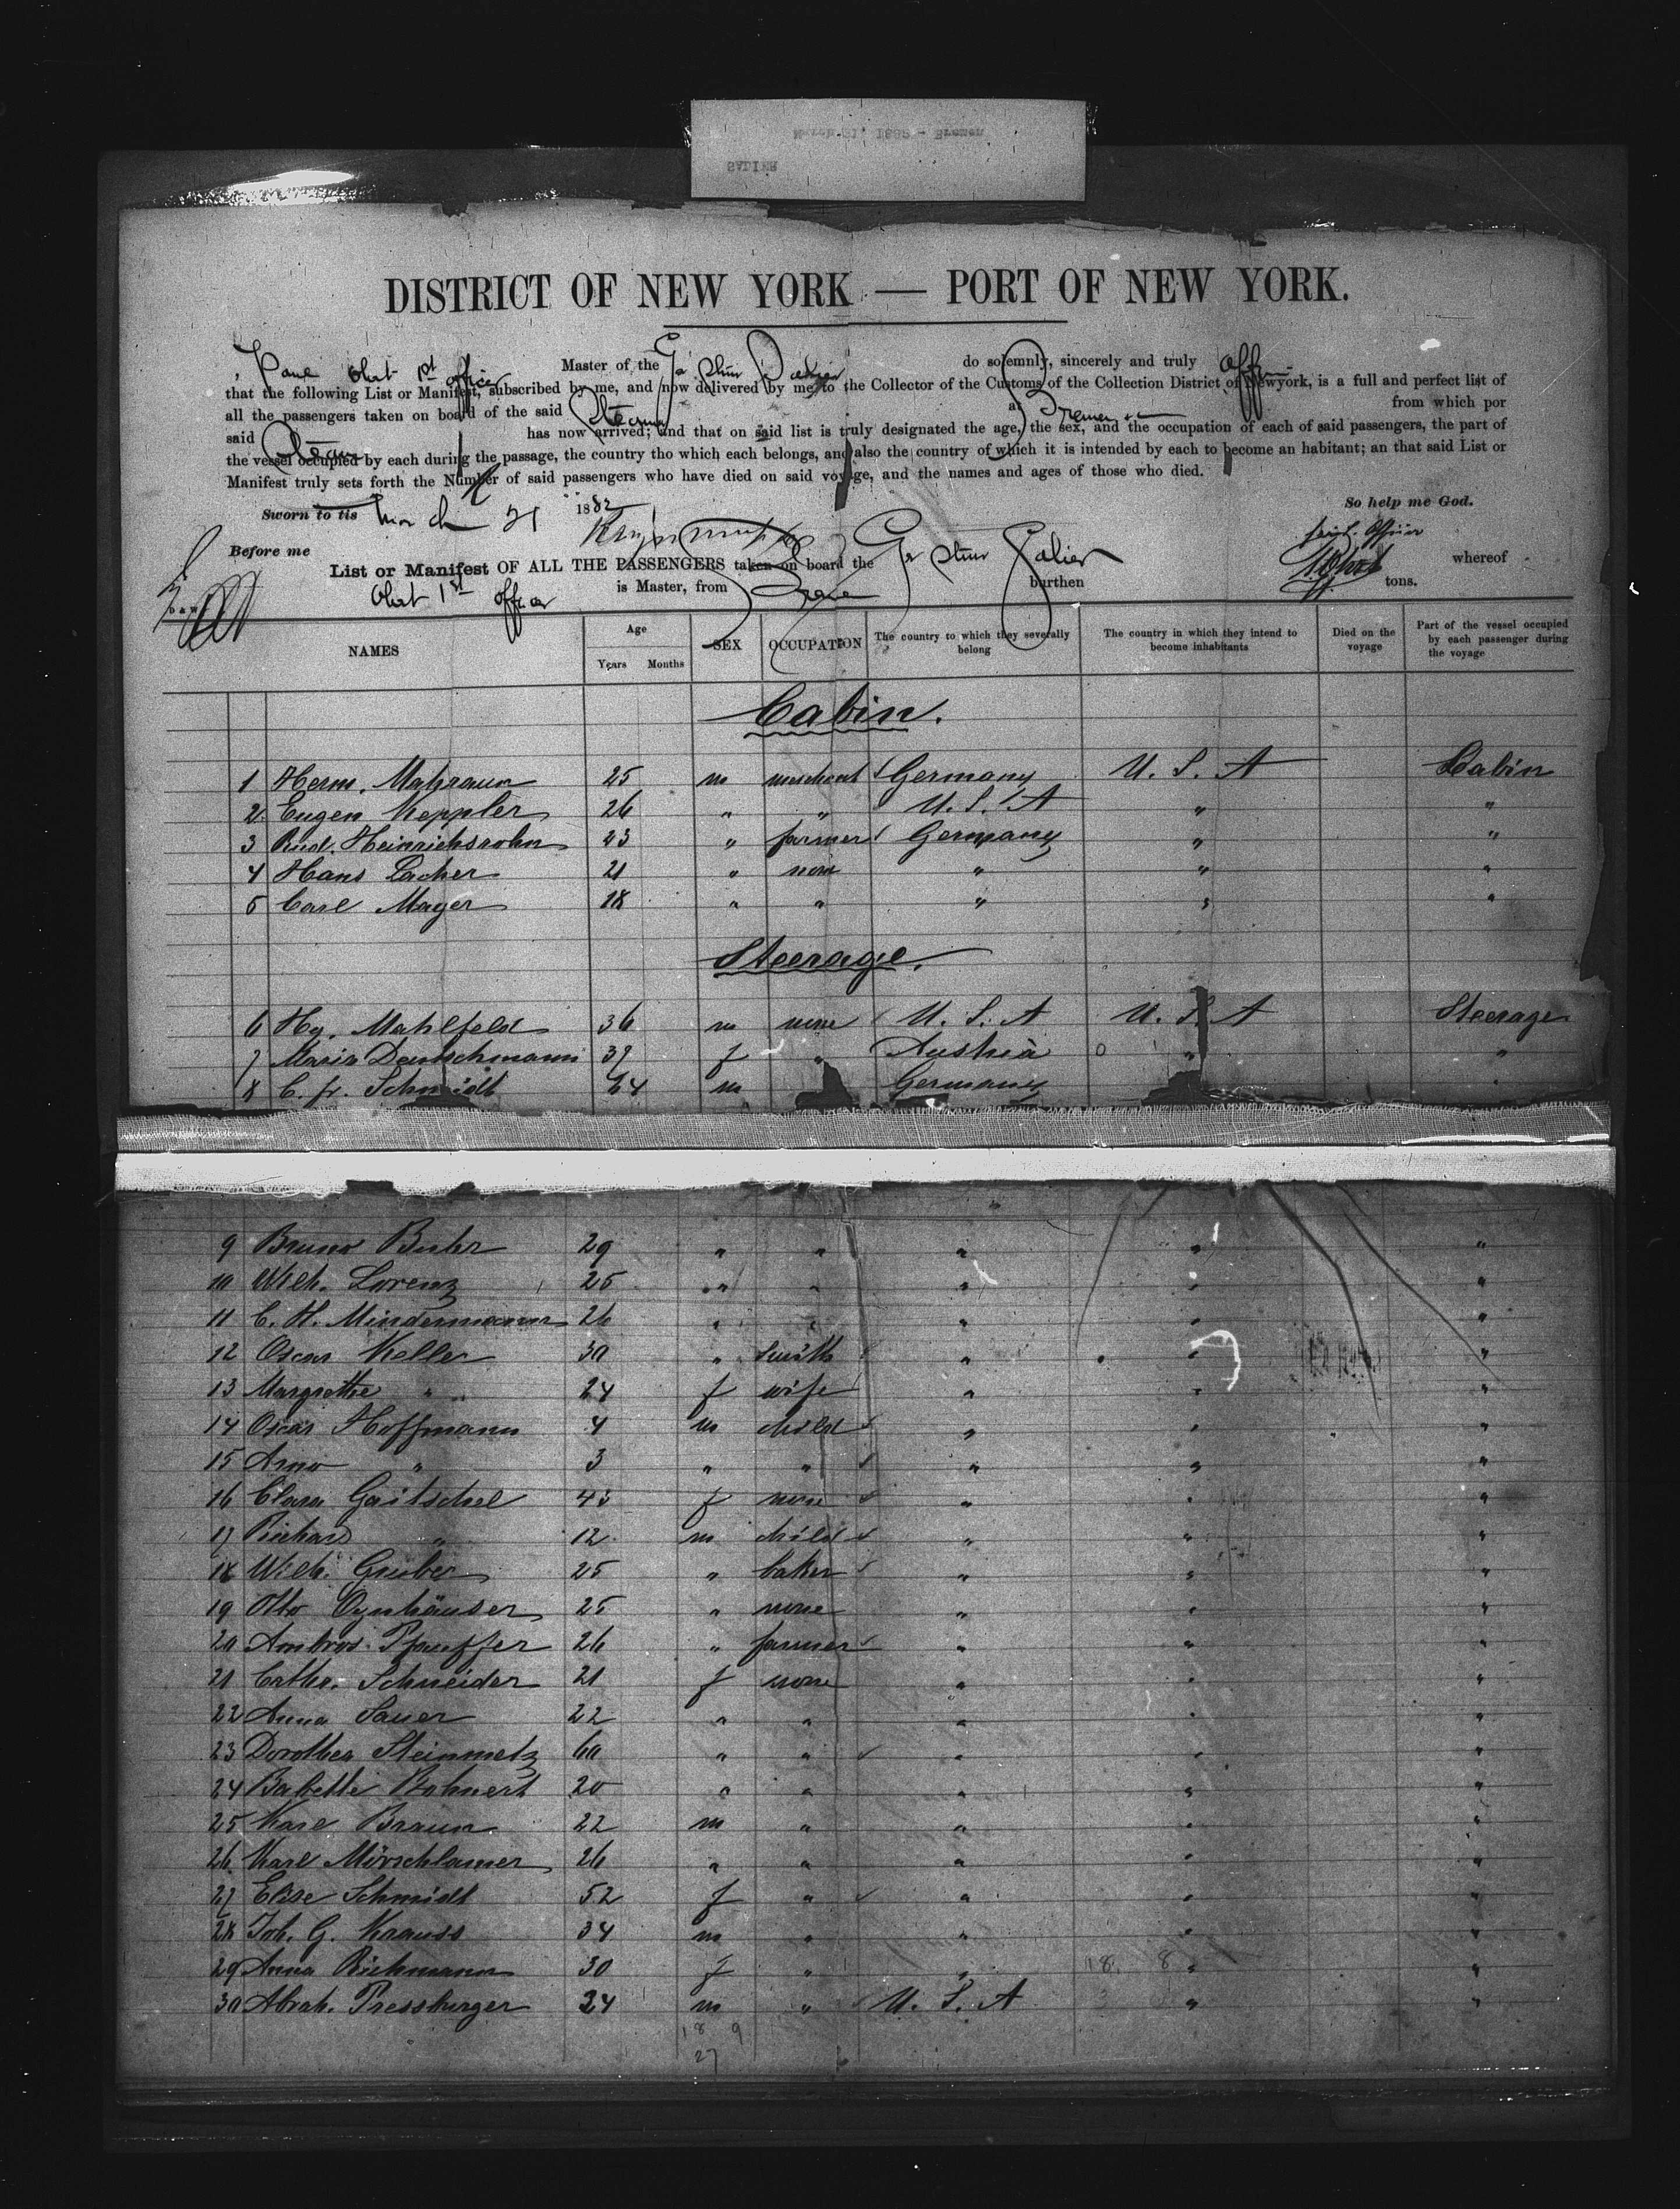 March 21, 1882 - Bremen
SALIER
DISTRICT OF NEW YORK — PORT OF NEW YORK.
I, Paul Ohrt 1st officer Master of the Ger Stmr Salier do solemnly, sincerely and truly affirm
that the following List or Manifest, subscribed by me, and now delivered by me to the Collector of the Customs of the Collection District of Newyork, is a full and perfect list of
all the passengers taken on board of the said Steamer at Bremen from which por
said Steamer has now arrived; and that on said list is truly designated the age, the sex, and the occupation of each of said passengers, the part of
the vessel occupied by each during the passage, the country tho which each belongs, and also the country of which it is intended by each to become an habitant; an that said List or
Manifest truly sets forth the Number of said passengers who have died on said voyage, and the names and ages of those who died.
Sworn to tis March 21 1882 So help me God.
Before me
List or Manifest OF ALL THE PASSENGERS taken on board the Ger Stmr Salier whereof
Ohrt 1st officer is Master, from Bremen burthen tons.
NAMES Age Years Months SEX OCCUPATION The country to which they severally belong The country in which they intend to become inhabitants Died on the voyage Part of the vessel occupied by each passenger during the voyage
Cabin.
1 Herm. Mahraun 25 m merchant Germany U. S. A Cabin
2 Eugen Keppler 26 " " U. S. A " "
3 Rud. Heinrichsohn 23 " farmer Germany " "
4 Hans Lacher 21 " none " " "
5 Carl Mayer 18 " " " " "
Steerage.
6 Hy. Mahlfeld 36 m none U. S. A U. S. A Steerage
7 Maria Deutschmann 37 f " Austria " "
8 C. fr. Schmidt 64 m Germany "
9 Bruno 29 " " " " "
10 Wilh. Lorenz 25 " " " " "
11 C. H. Mindermann 26 " " " " "
12 Oscar Keller 30 " smith " " "
13 Margrethe " 24 f wife " " "
14 Oscar Hoffmann 4 m child " " "
15 Arno " 3 " " " " "
16 Clara Gaitschel 43 f none " " "
17 Richard " 12 m child " " "
18 Wilh. Gruber 25 " baker " " "
19 Otto Oynhäuser 25 " none " " "
20 Ambros. Pfauffer 26 " farmer " " "
21 Cathe. Schneider 21 f none " " "
22 Anna Sauer 22 " " " " "
23 Dorothea Steinmetz 60 " " " " "
24 Babette Bohnert 20 " " " " "
25 Karl Braun 22 m " " " "
26 Karl Mörschlamer 26 " " " " "
27 Elise Schmidt 52 f " " " "
28 Joh. G. Krauss 34 m " " " "
29 Anna Richmann 30 f " " " "
30 Abrah. Pressburger 24 m " U. S. A " "
18 9
27